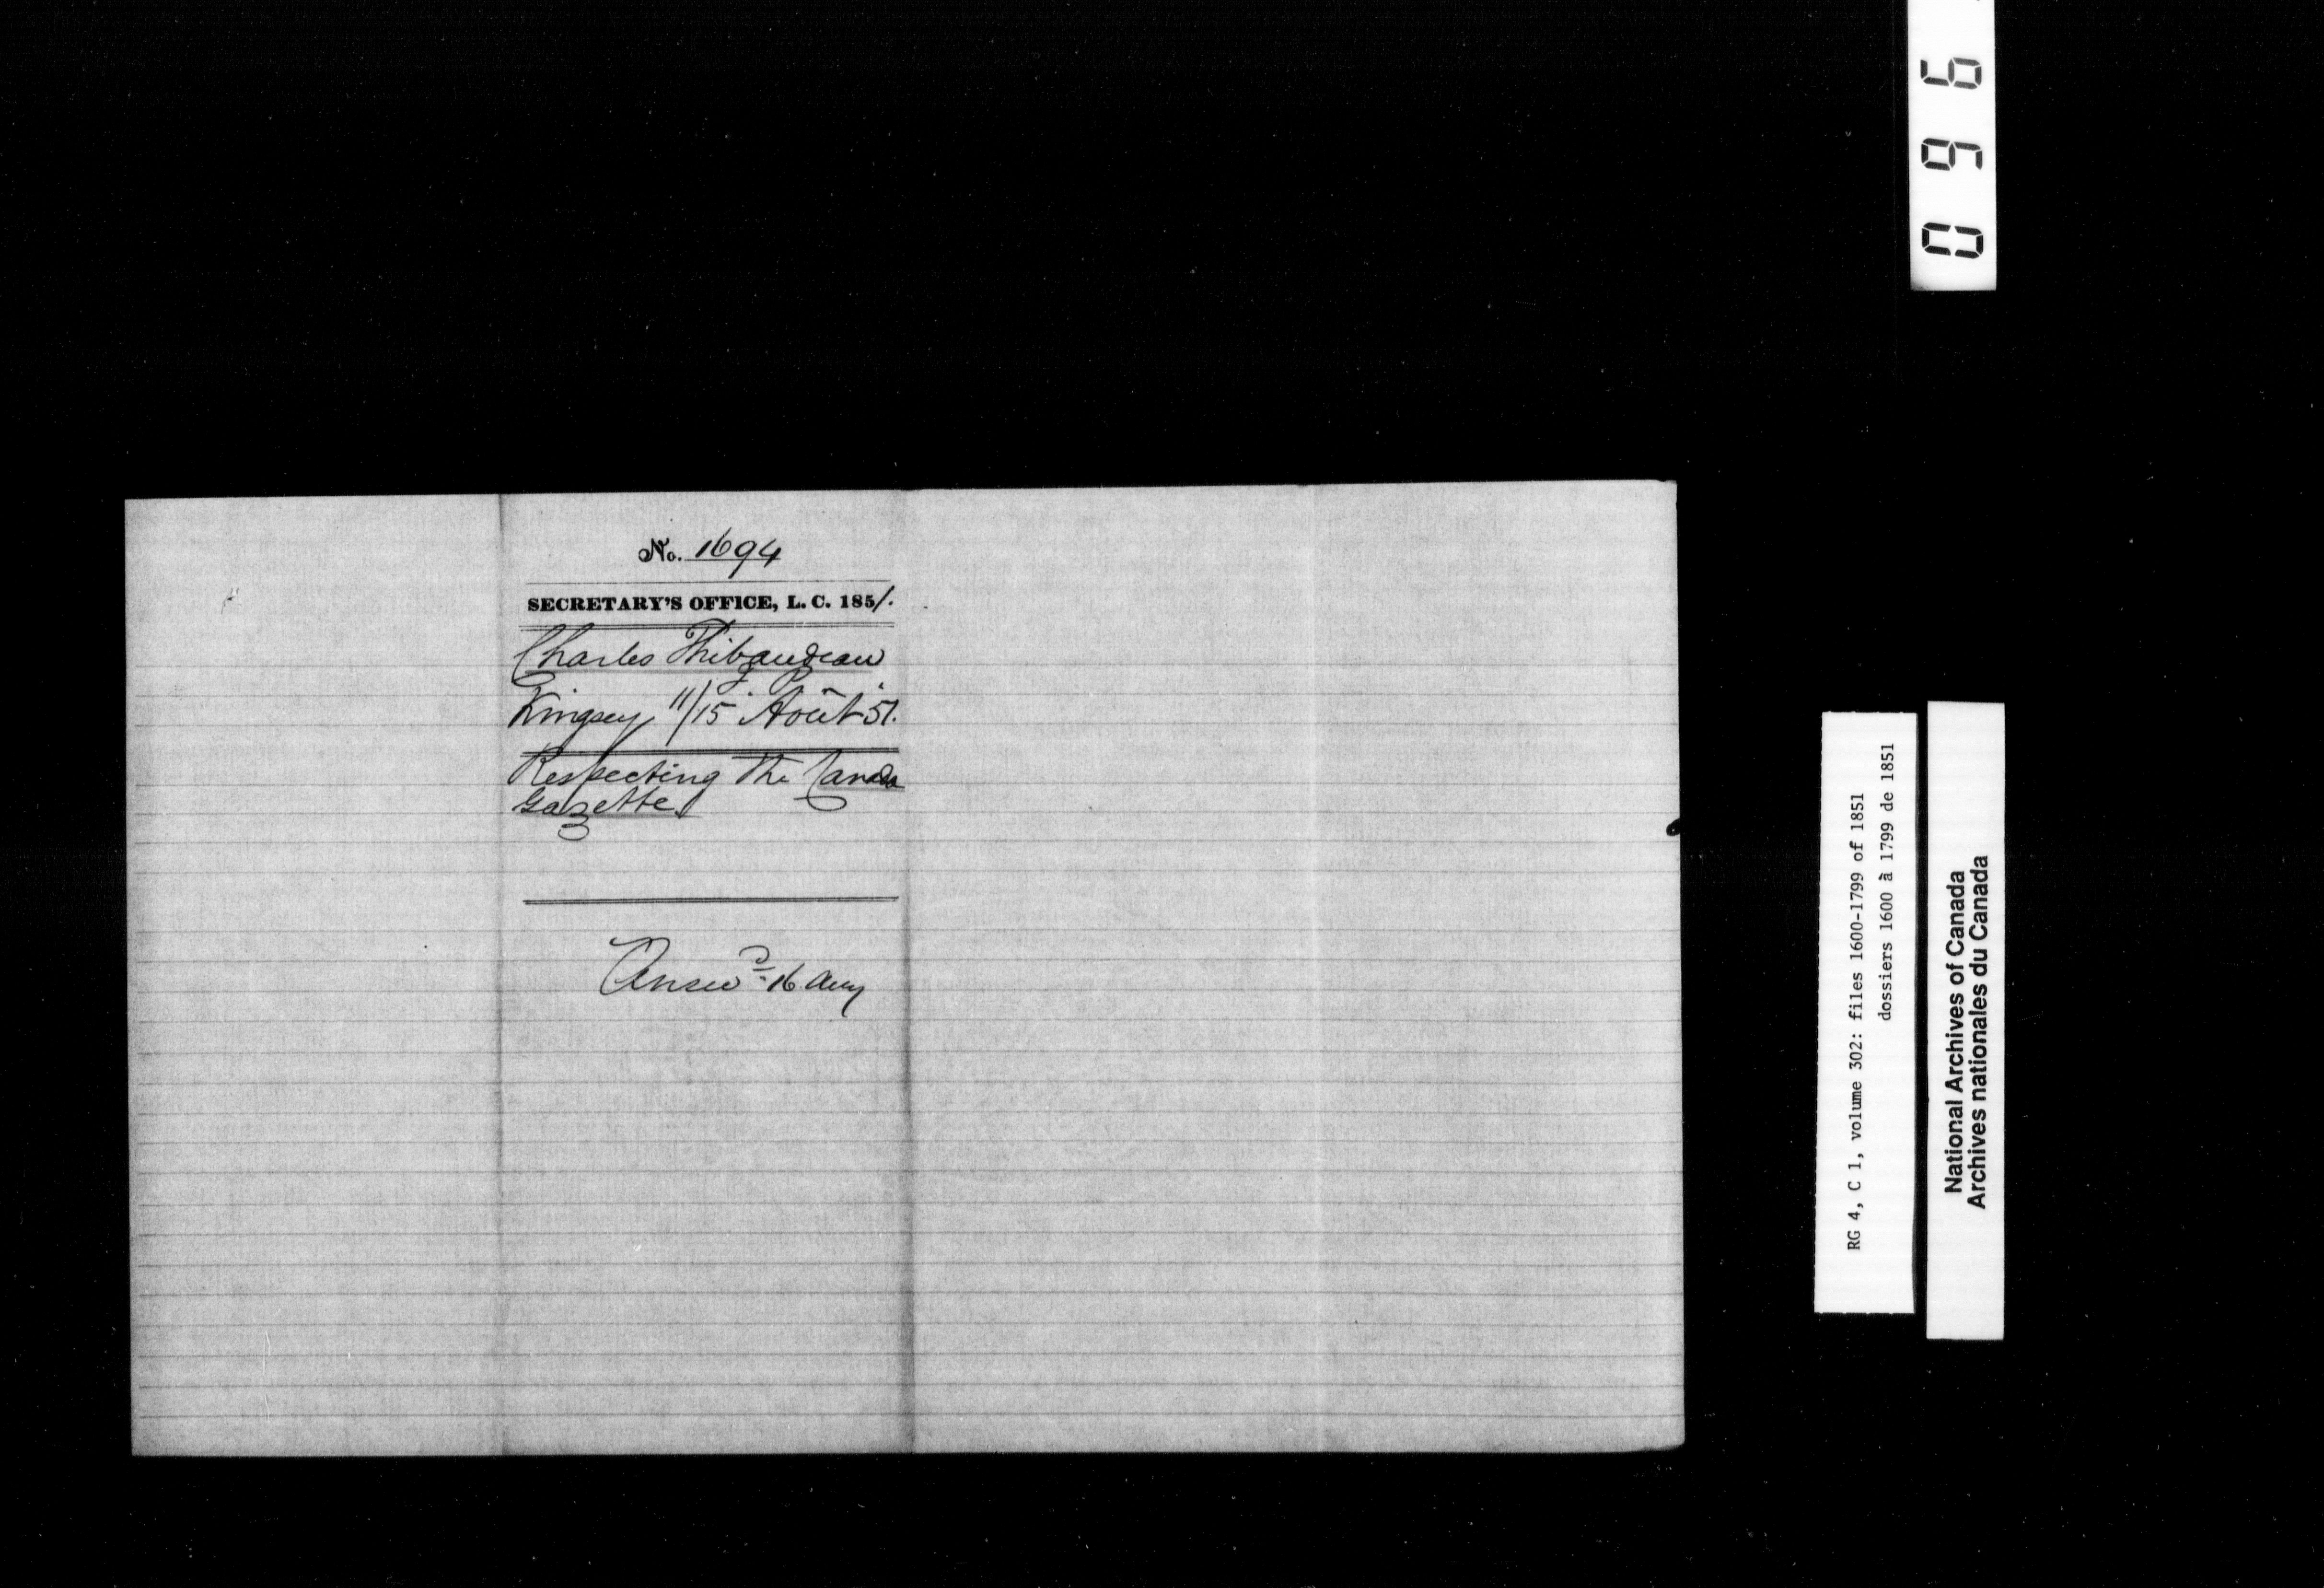 No. 1694
SECRETARY'S OFFICE, L. C. 1851.
Charles Thibaudeau
J. P.
Kingsey 11/15 Août 51.
Respecting The Canada
Gazette.
Answd. 16 Aug
096
RG 4, C 1, volume 302: files 1600-1799 of 1851
dossiers 1600 à 1799 de 1851
National Archives of Canada
Archives nationales du Canada